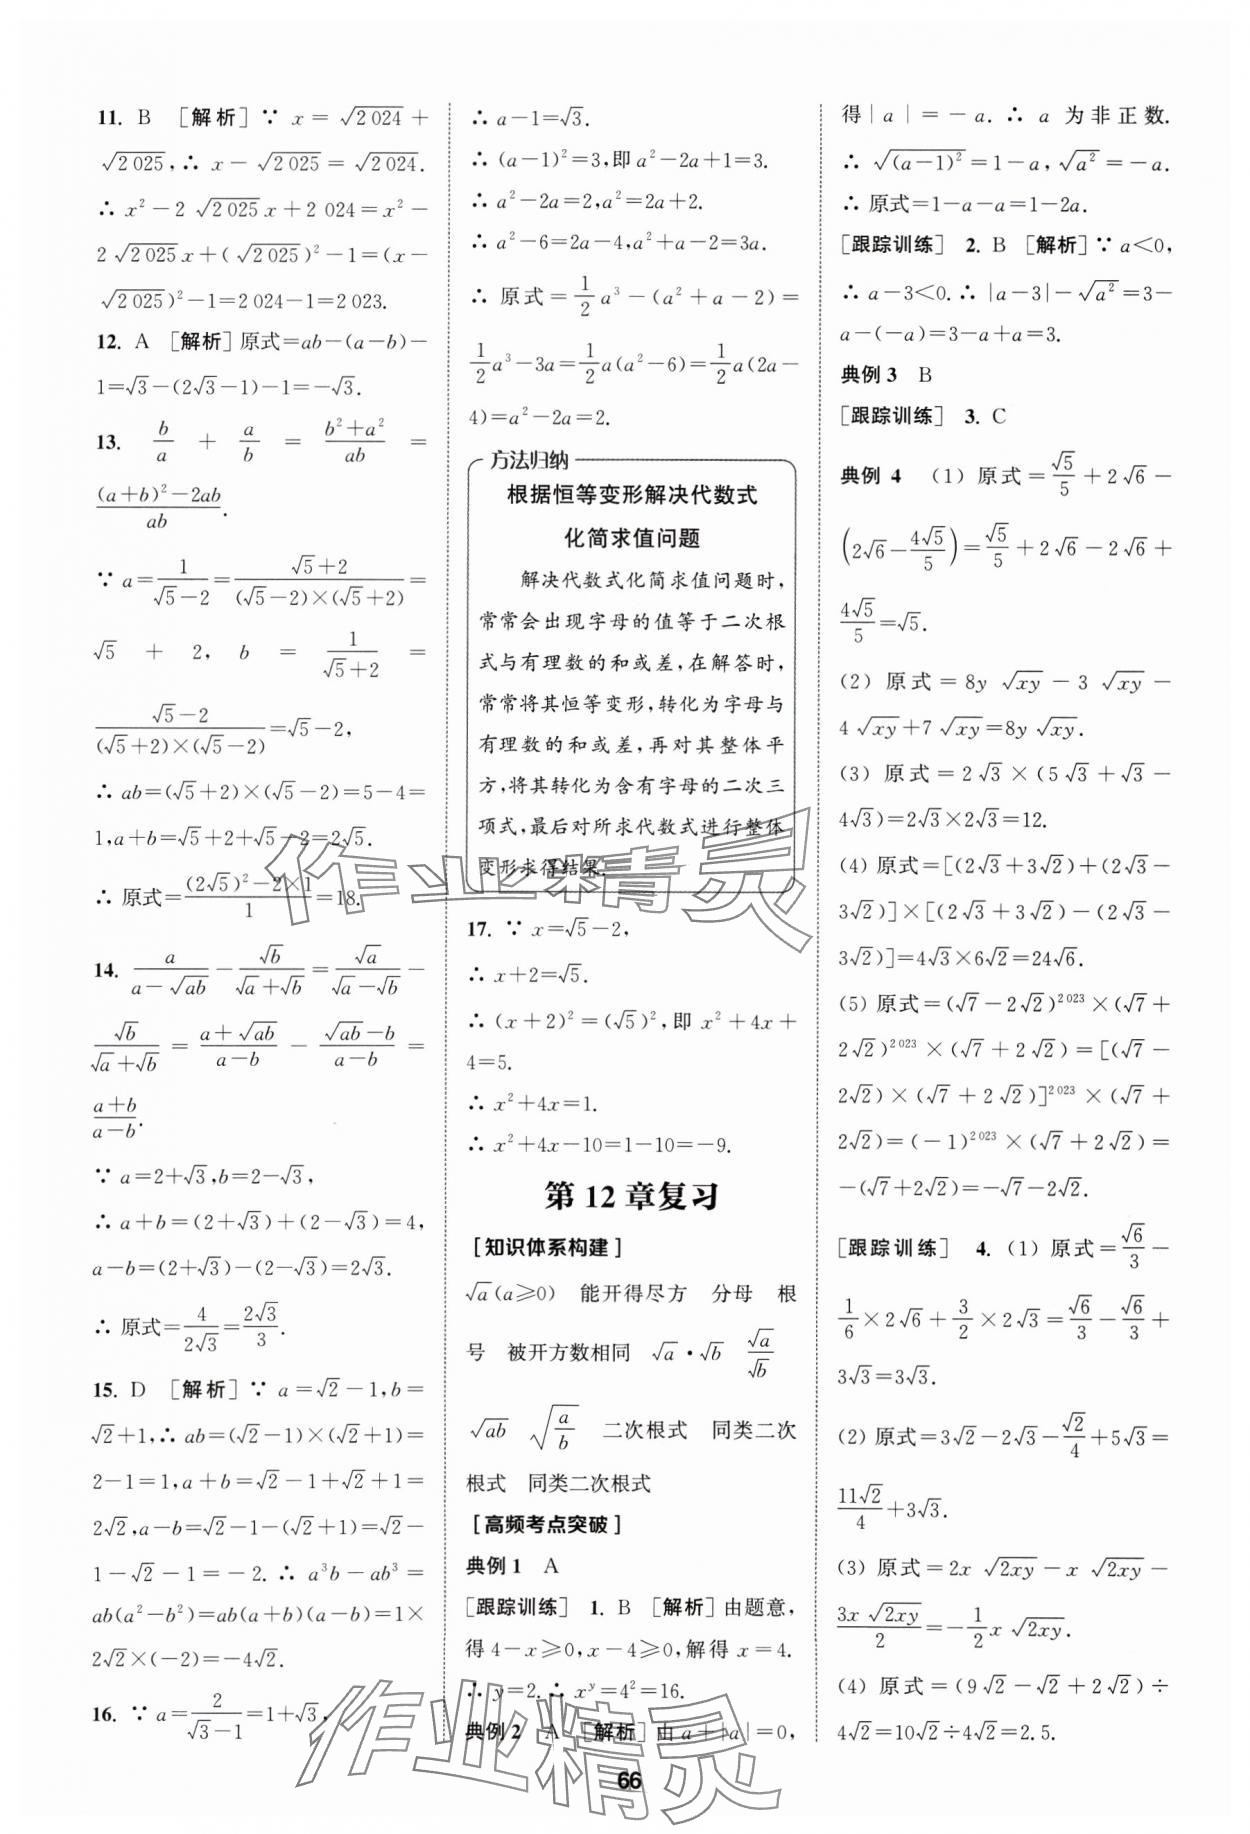 11. B [解析]∵ x = √2 024 +
√2 025,∴ x - √2 025 = √2 024.
∴ x² - 2 √2 025 x + 2 024 = x² -
2 √2 025 x + ( √2 025 )² - 1 = (x -
√2 025)² - 1 = 2 024 - 1 = 2 023.
12. A [解析]原式=ab-(a-b)-
1=√3-(2√3-1)-1=-√3.
13. b/a + a/b = (b²+a²)/ab =
((a+b)²-2ab)/ab.
∵ a = 1/(√5-2) = (√5+2)/((√5-2)×(√5+2)) =
√5 + 2, b = 1/(√5+2) =
(√5-2)/((√5+2)×(√5-2)) = √5-2,
∴ ab=(√5+2)×(√5-2)=5-4=
1,a+b=√5+2+√5-2=2√5.
∴ 原式=((2√5)²-2×1)/1=18.
14. a/(a-√ab) - √b/(√a+√b) = √a/(√a-√b) -
√b/(√a+√b) = (a+√ab)/(a-b) - (√ab-b)/(a-b) =
(a+b)/(a-b).
∵ a=2+√3,b=2-√3,
∴ a+b=(2+√3)+(2-√3)=4,
a-b=(2+√3)-(2-√3)=2√3.
∴ 原式=4/(2√3)=2√3/3.
15. D [解析]∵ a=√2-1,b=
√2+1,∴ ab=(√2-1)×(√2+1)=
2-1=1,a+b=√2-1+√2+1=
2√2,a-b=√2-1-(√2+1)=√2-
1-√2-1=-2.∴ a³b-ab³=
ab(a²-b²)=ab(a+b)(a-b)=1×
2√2×(-2)=-4√2.
16. ∵ a=2/(√3-1)=1+√3,
∴ a-1=√3.
∴ (a-1)²=3,即 a²-2a+1=3.
∴ a²-2a=2,a²=2a+2.
∴ a²-6=2a-4,a²+a-2=3a.
∴ 原式=1/2 a³-(a²+a-2)=
1/2 a³-3a=1/2 a(a²-6)=1/2 a(2a-
4)=a²-2a=2.
方法归纳
根据恒等变形解决代数式
化简求值问题
解决代数式化简求值问题时,
常常会出现字母的值等于二次根
式与有理数的和或差,在解答时,
常常将其恒等变形,转化为字母与
有理数的和或差,再对其整体平
方,将其转化为含有字母的二次三
项式,最后对所求代数式进行整体
变形求得结果.
17. ∵ x=√5-2,
∴ x+2=√5.
∴ (x+2)²=(√5)²,即 x²+4x+
4=5.
∴ x²+4x=1.
∴ x²+4x-10=1-10=-9.
第 12 章复习
[知识体系构建]
√a(a≥0) 能开得尽方 分母 根
号 被开方数相同 √a·√b √a/√b
√ab √(a/b) 二次根式 同类二次
根式 同类二次根式
[高频考点突破]
典例 1 A
[跟踪训练] 1. B [解析]由题意,
得 4-x≥0,x-4≥0,解得 x=4.
∴ y=2.∴ xʸ=4²=16.
典例 2 A [解析]由 a+|a|=0,
得|a|=-a.∴ a 为非正数.
∴ √(a-1)²=1-a,√a²=-a.
∴ 原式=1-a-a=1-2a.
[跟踪训练] 2. B [解析]∵ a<0,
∴ a-3<0.∴ |a-3|-√a²=3-
a-(-a)=3-a+a=3.
典例 3 B
[跟踪训练] 3. C
典例 4 (1) 原式=√5/5+2√6-
(2√6-4√5/5)=√5/5+2√6-2√6+
4√5/5=√5.
(2) 原式=8y √xy-3 √xy-
4 √xy+7 √xy=8y √xy.
(3) 原式=2√3×(5√3+√3-
4√3)=2√3×2√3=12.
(4) 原式=[(2√3+3√2)+(2√3-
3√2)]×[(2√3+3√2)-(2√3-
3√2)]=4√3×6√2=24√6.
(5) 原式=(√7-2√2)²⁰²³×(√7+
2√2)²⁰²³×(√7+2√2)=[(√7-
2√2)×(√7+2√2)]²⁰²³×(√7+
2√2)=(-1)²⁰²³×(√7+2√2)=
-(√7+2√2)=-√7-2√2.
[跟踪训练] 4. (1) 原式=√6/3-
1/6×2√6+3/2×2√3=√6/3-√6/3+
3√3=3√3.
(2) 原式=3√2-2√3-√2/4+5√3=
11√2/4+3√3.
(3) 原式=2x √2xy-x √2xy-
3x √2xy/2=-1/2 x √2xy.
(4) 原式=(9√2-√2+2√2)÷
4√2=10√2÷4√2=2.5.
66
作业精灵
作业精灵